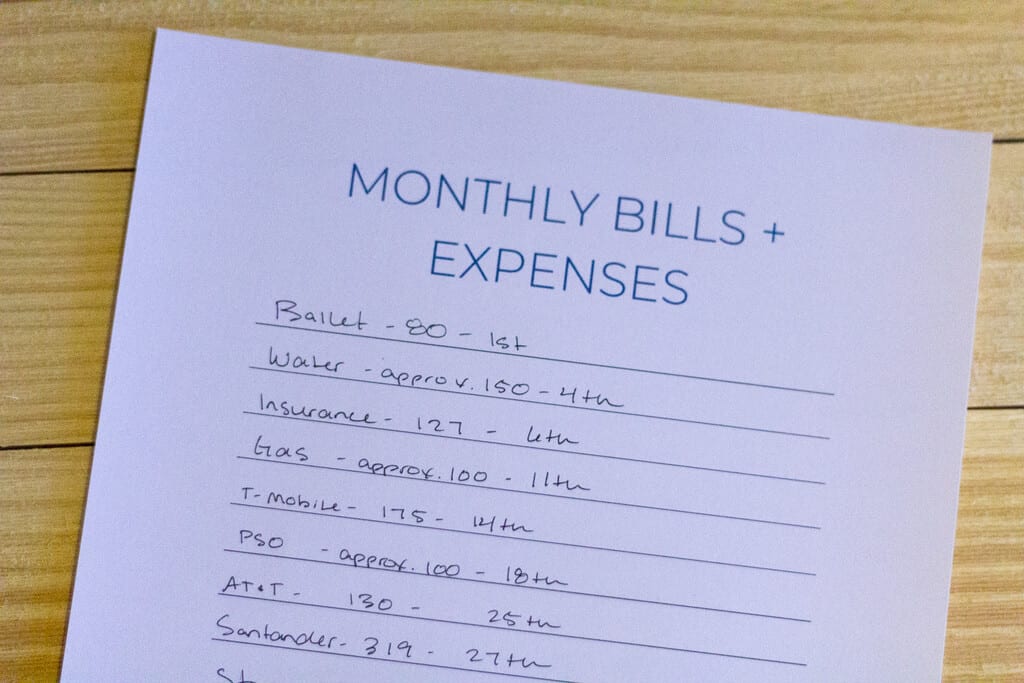 MONTHLY BILLS +
EXPENSES
Ballet - 80 - 1st
Water - approx. 150 - 4th
Insurance - 127 - 6th
Gas - approx. 100 - 11th
T-Mobile - 175 - 14th
PSO - approx. 100 - 18th
AT&T - 130 - 25th
Santander - 319 - 27th